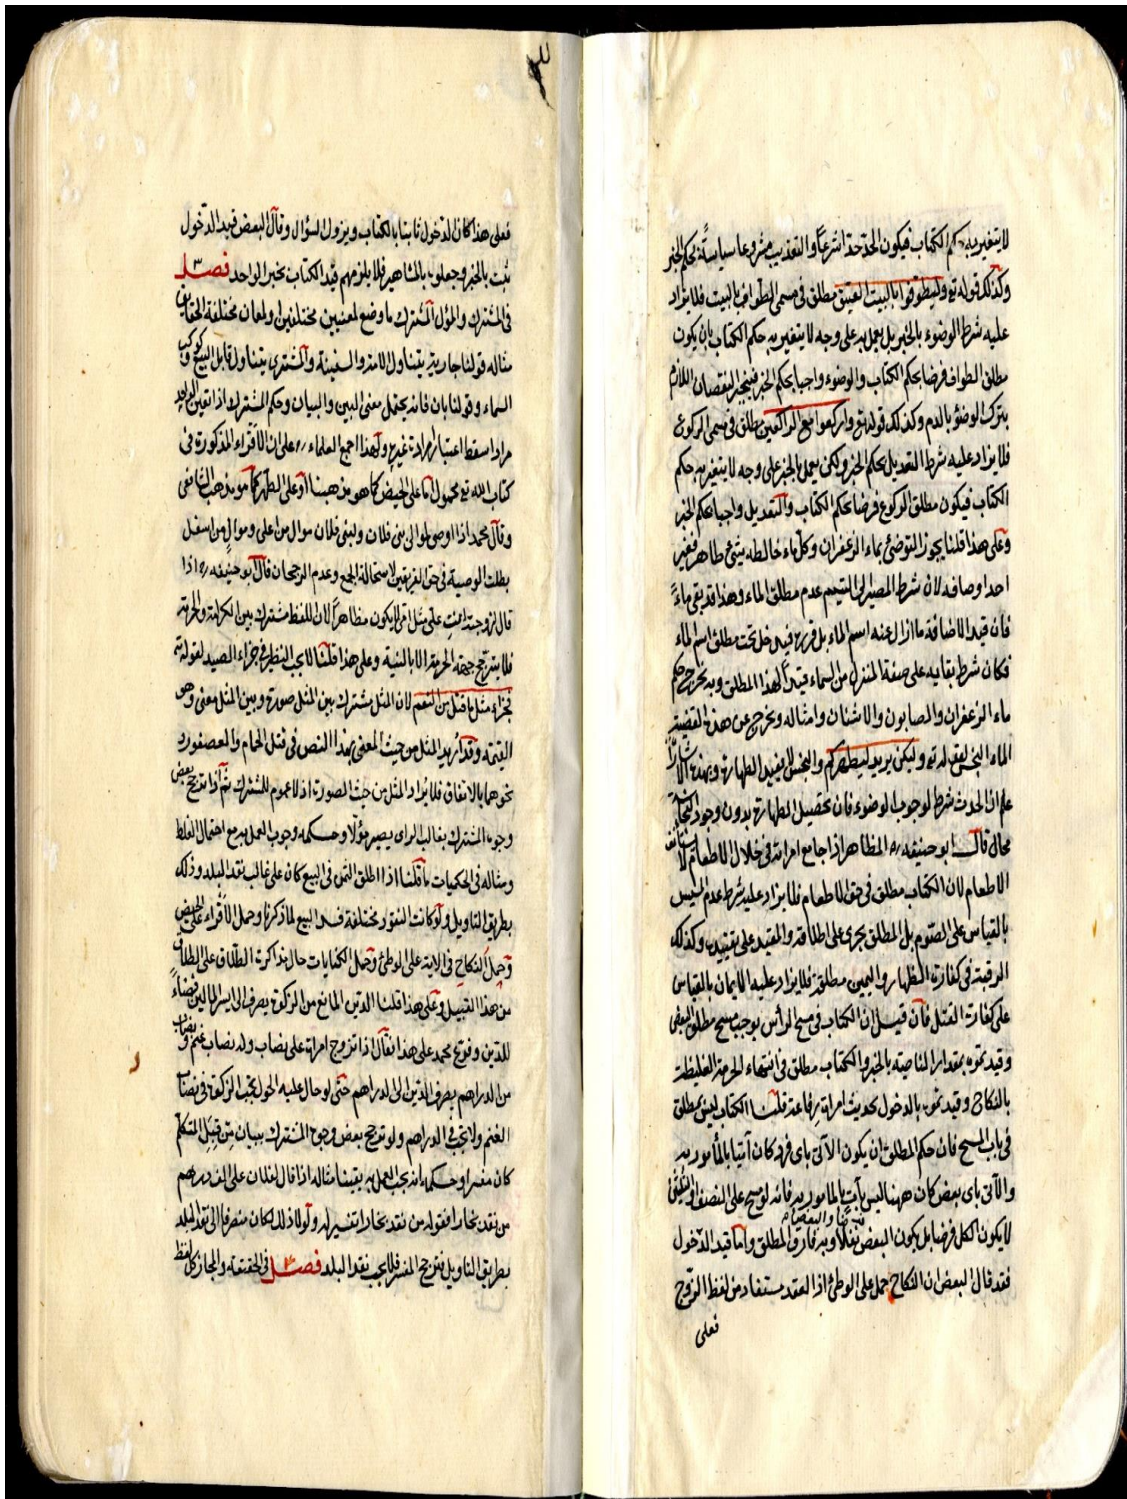 لا يتغير به حكم الكتاب فيكون الحد حدا شرعيا والتغريب مشروعا سياسة بحكم الخبر
وكذلك قوله تع وليطوفوا بالبيت العتيق مطلق في مسمى الطواف بالبيت فلا يزاد
عليه شرط الوضوء بالخبر بل يعمل به على وجه لا يتغير به حكم الكتاب بان يكون
مطلق الطواف فرضا بحكم الكتاب والوضوء واجبا بحكم الخبر فيجبر النقصان اللازم
بترك الوضوء بالدم وكذلك قوله تع واركعوا مع الراكعين مطلق في مسمى الركوع
فلا يزاد عليه شرط التعديل بحكم الخبر ولكن يعمل بالخبر على وجه لا يتغير به حكم
الكتاب فيكون مطلق الركوع فرضا بحكم الكتاب والتعديل واجبا بحكم الخبر
وعلى هذا قلنا يجوز التوضئ بماء الزعفران وكل ماء خالطه شئ طاهر فغير
احد اوصافه لان شرط المصير الى التيمم عدم مطلق الماء وهذا قد بقى ماء
فان قيد الاضافة ما ازال عنه اسم الماء بل قرره فيدخل تحت مطلق اسم الماء
فكان شرط بقايه على صفة المنزل من السماء قيدا لهذا المطلق وبه يخرج حكم
ماء الزعفران والصابون والاشنان وامثاله وخرج عن هذه القضية
الماء النجس لقوله تع وليكن يريد ليطهركم والنجس لا يفيد الطهارة وبهذه الاشارة
علم ان الحدث شرط لوجوب الوضوء فان تحصيل الطهارة بدون وجود النجاسة
محال قال ابو حنيفة رح المظاهر اذا جامع امراته في خلال الاطعام لا يستأنف
الاطعام لان الكتاب مطلق في حق الاطعام فلا يزاد عليه شرط عدم المسيس
بالقياس على الصوم بل المطلق يجرى على اطلاقه والمقيد على تقييده وكذلك
الرقبة في كفارة الظهار واليمين مطلقة فلا يزاد عليه الايمان بالقياس
على كفارة القتل فان قيل ان الكتاب في مسح الرأس يوجب مسح مطلق البعض
وقيدتموه بمقدار الناصية بالخبر والكتاب مطلق في انتهاء الحرمة الغليظة
بالنكاح وقيدتموه بالدخول بحديث امراة رفاعة قلنا الكتاب ليس بمطلق
في باب المسح فان حكم المطلق ان يكون الآتى باى فرد كان آتيا بالمأمور به
والآتى باى بعض كان ههنا ليس بآت بالمامور به فانه لو مسح على النصف او الثلثين
لا يكون الكل فرضا بل يكون البعض فرضا والبعض نفلا وبه فارق المطلق واما قيد الدخول
فقد قال البعض ان النكاح حمل على الوطئ اذ العقد مستفاد من لفظ الزوج
فعلى
فعلى هذا كان الدخول ثابتا بالكتاب ويزول السؤال وقال البعض قيد الدخول
ثبت بالخبر وجعلوه بالمشاهير فلا يلزمهم قيد الكتاب بخبر الواحد فصل
في المشترك والمؤل المشترك ما وضع لمعنيين مختلفين او لمعان مختلفة الحقايق
مثاله قولنا جارية يتناول الامة والسفينة والمشترى يتناول قابل البيع وكوكب
السماء وقولنا بان فانه يحتمل معنى البين والبيان وحكم المشترك اذا تعين الواحد
مرادا سقط اعتبار ارادة غيره ولهذا اجمع العلماء رح على ان الاقراء المذكورة في
كتاب الله تع محمول اما على الحيض كما هو مذهبنا او على الطهر كما هو مذهب الشافعى
وقال محمد اذا اوصى لموالى بنى فلان ولبنى فلان موال من اعلى وموال من اسفل
بطلت الوصية في حق الفريقين لاستحالة الجمع وعدم الرجحان قال ابو حنيفه رح اذا
قال لزوجته انت على مثل امى لا يكون مظاهرا لان اللفظ مشترك بين الكرامة والحرمة
فلا يترجح جهة الحرمة الا بالنية وعلى هذا قلنا لا يجب النظير في جزاء الصيد لقوله تع
فجزاء مثل ما قتل من النعم لان المثل مشترك بين المثل صورة وبين المثل معنى وهو
القيمة وقد اريد المثل من حيث المعنى بهذا النص في قتل الحمام والعصفور و
نحوهما بالاتفاق فلا يراد المثل من حيث الصورة اذ لا عموم للمشترك ثم اذا ترجح بعض
وجوه المشترك بغالب الراى يصير مؤلا وحكمه وجوب العمل به مع احتمال الغلط
ومثاله في الحكميات ما قلنا اذا اطلق الثمن في البيع كان على غالب نقد البلد وذلك
بطريق التاويل ولو كانت النقود مختلفة فسد البيع لما ذكرنا وحمل الاقراء على الحيض
وحمل النكاح في الاية على الوطئ وحمل الكنايات حال مذاكرة الطلاق على الطلاق
من هذا القبيل وعلى هذا قلنا الدين المانع من الزكوة يصرف الى ايسر المالين قضاء
للدين وفرع محمد على هذا فقال اذا تزوج امراة على نصاب وله نصاب غنم ونصاب
من الدراهم يصرف الدين الى الدراهم حتى لو حال عليه الحول يجب الزكوة في نصاب
الغنم ولا يجب في الدراهم ولو ترجح بعض وجوه المشترك ببيان من قبل المتكلم
كان مفسرا وحكمه انه يجب العمل به يقينا مثاله اذا قال لفلان على الف درهم
من نقد بخارا فقوله من نقد بخارا تفسير له ولولا ذلك لكان منصرفا الى نقد البلد
بطريق التاويل فترجح المفسر فلا يجب نقد البلد فصل في الحقيقة والمجاز كل لفظ